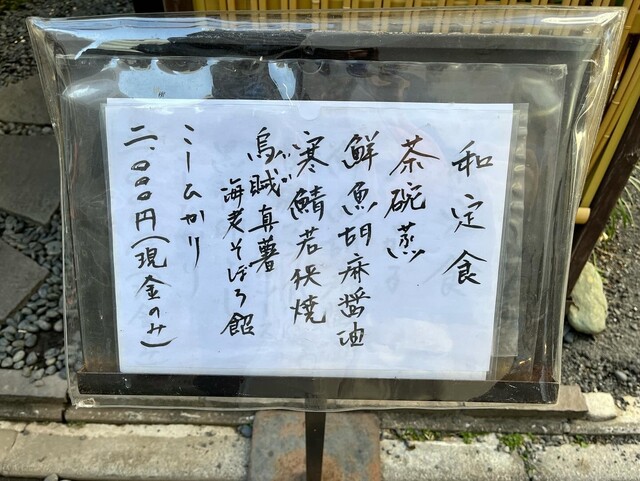 和定食
茶碗蒸し
鮮魚胡麻醤油
寒鯖若狭焼
烏賊真薯
海老そぼろ餡
こしひかり
二、〇〇〇円(現金のみ)